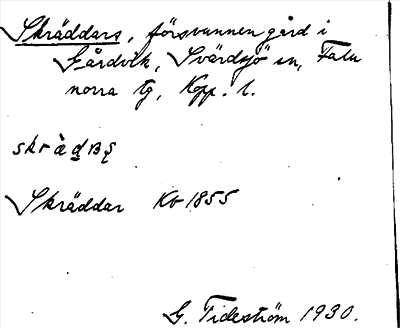 Skräddars, försvunnen gård i
Gårdvik, Svärdsjö sn, Falu
norra tg, Kopp. l.
Skräddar Kb 1855
G. Tideström 1930.